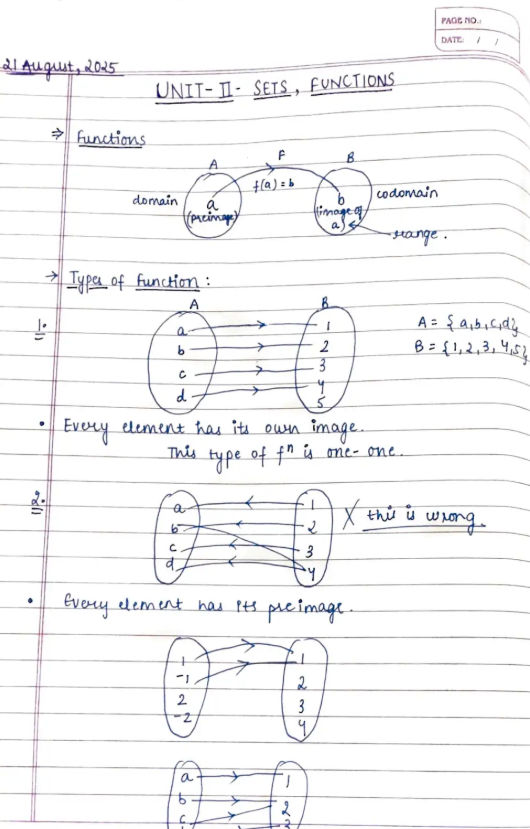 PAGE NO.:
DATE: / /
21 August, 2025
UNIT-II- SETS, FUNCTIONS
⇒ Functions
A F B
f(a) = b
domain a b codomain
(preimage) (image of
a)
range.
→ Types of function :
A B
1. a 1 A = {a,b,c,d}
b 2 B = {1,2,3,4,5}
c 3
d 4
5
• Every element has its own image.
This type of fⁿ is one-one.
2. a 1 X this is wrong.
b 2
c 3
d 4
• Every element has its preimage.
1 1
-1 2
2 3
-2 4
a 1
b 2
c 3